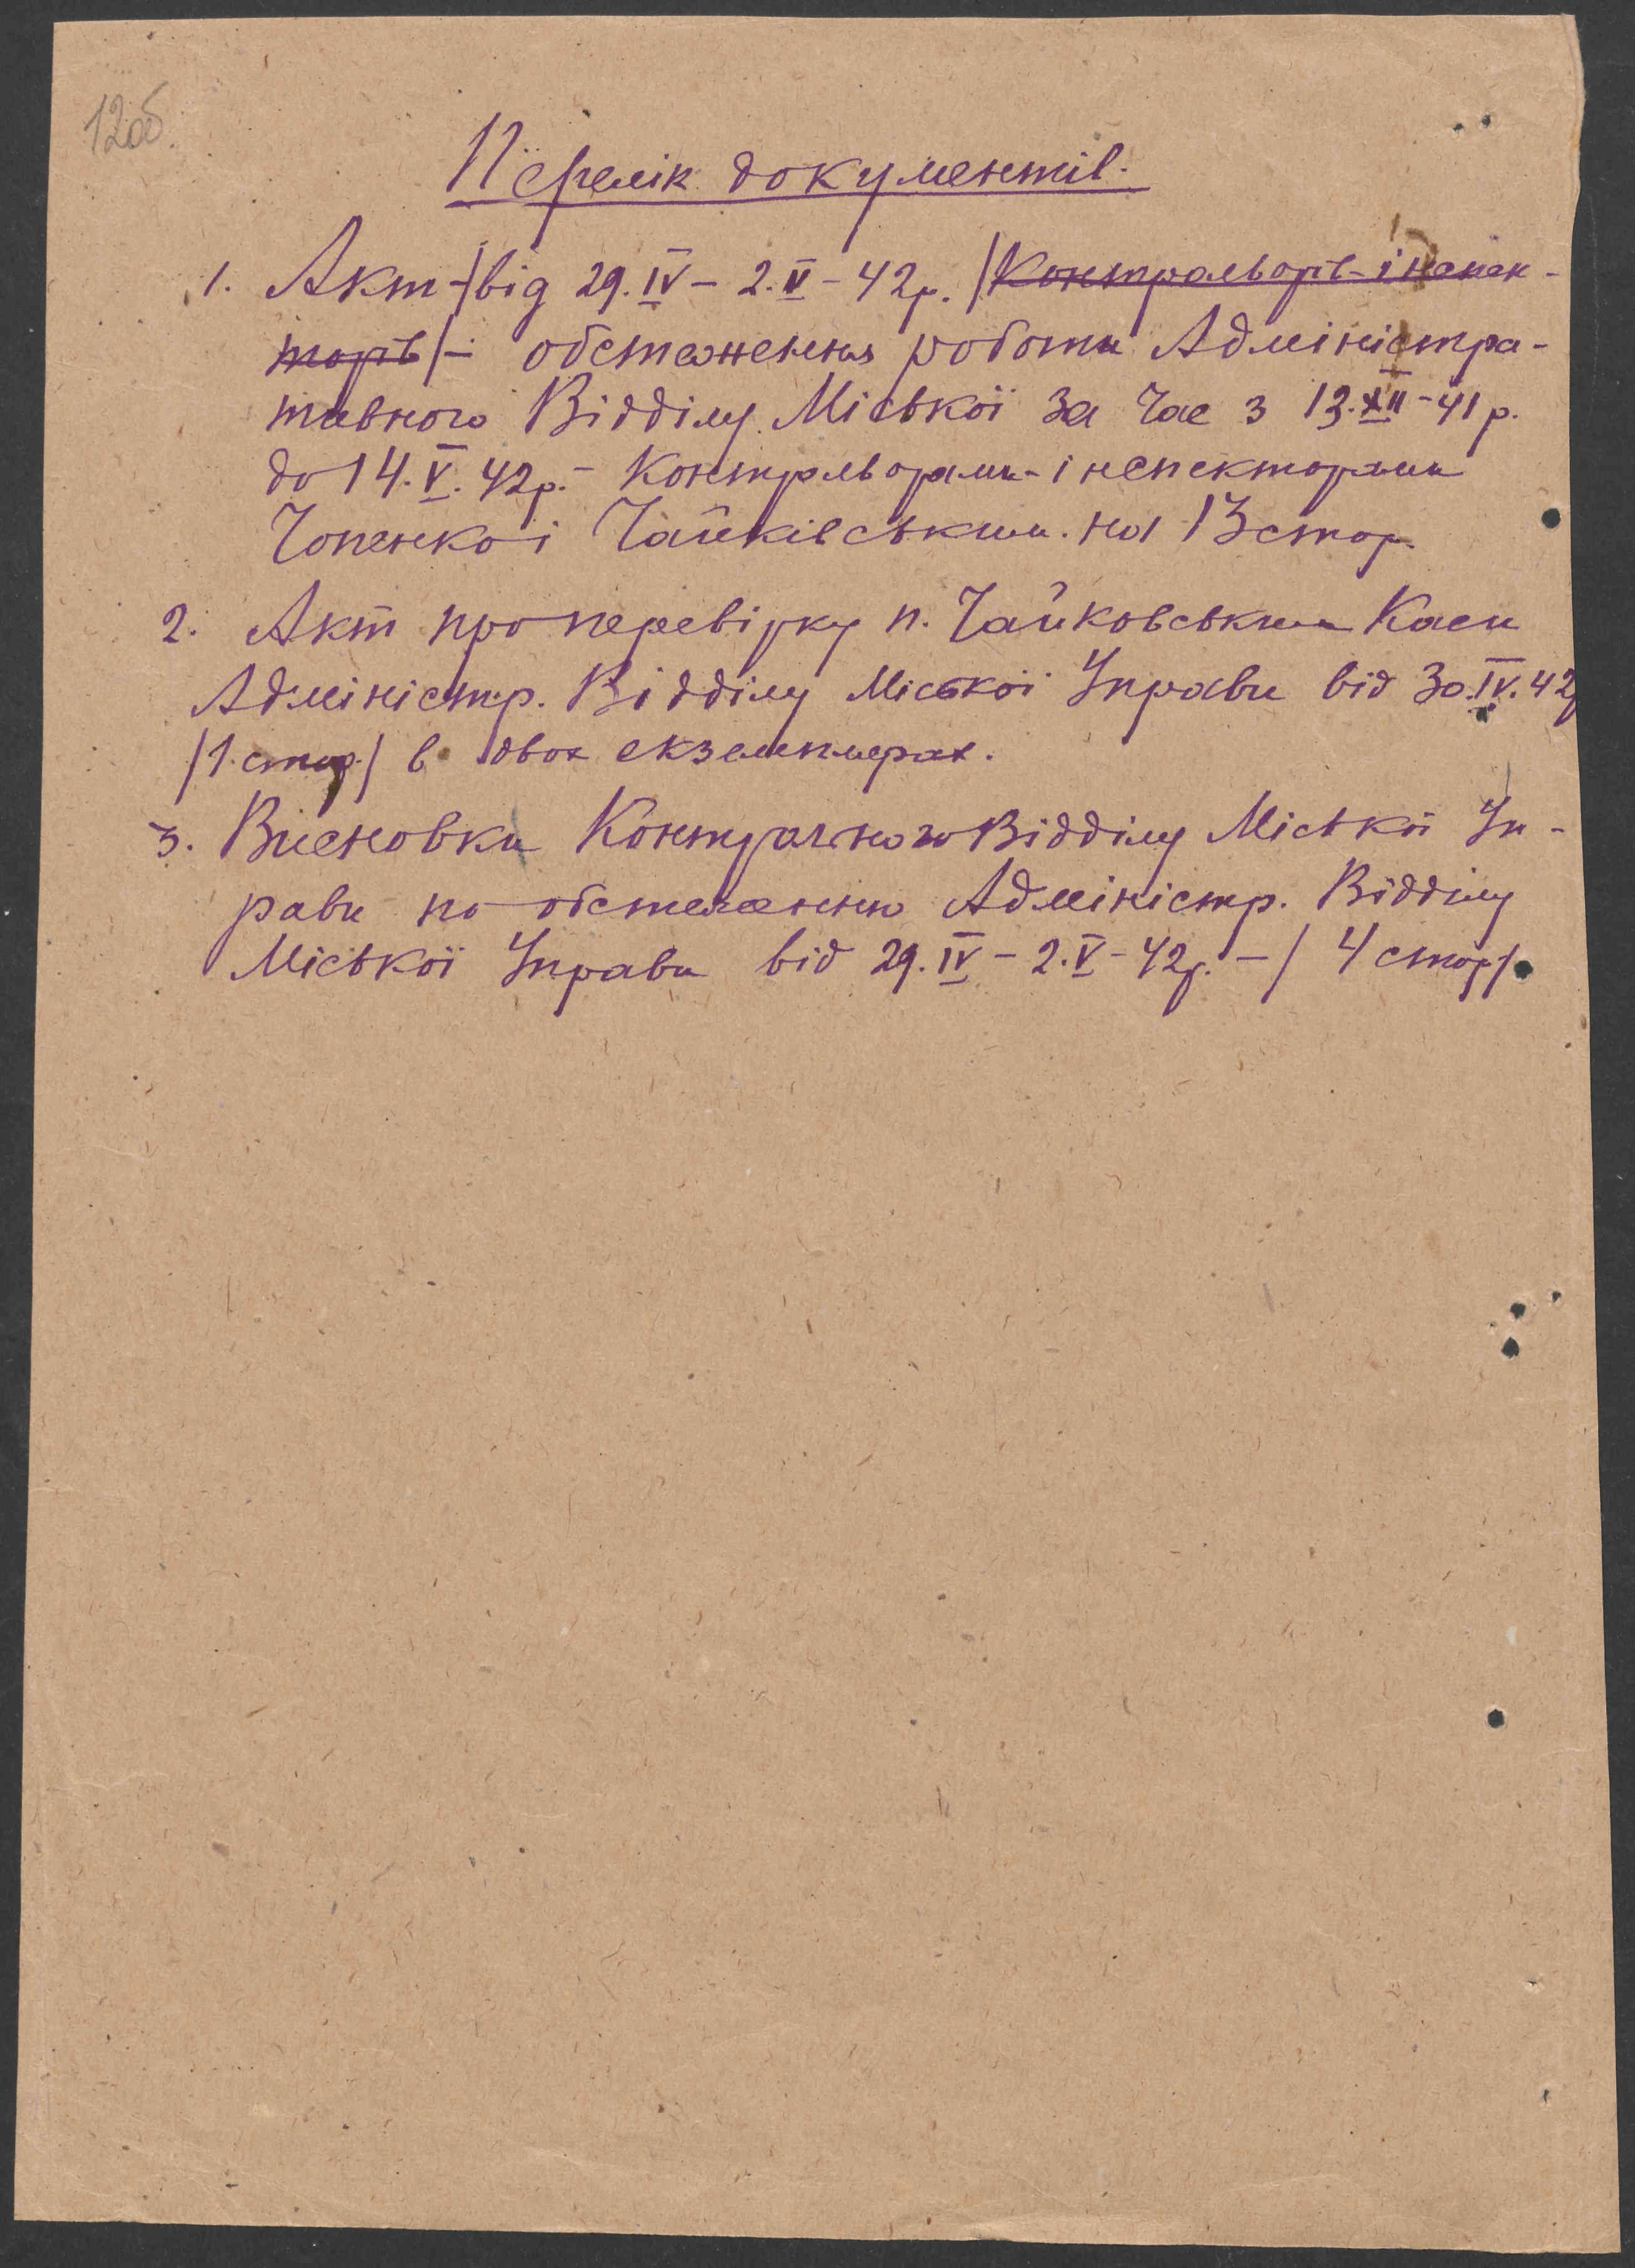 12об.
Перелік документів.
1. Акт /від 29.IV – 2.V – 42р. /Контрольорів-інспек-
торів/ – обстеження роботи Адміністра-
тивного Відділу Міської за час з 13.XII – 41 р.
до 14.V.42р. – Контрольорами-інспекторами
Чопенко і Чайківським. на 13 стор.
2. Акт про перевірку п. Чайковським Каси
Адміністр. Відділу Міської Управи від 30.IV.42р
/1 стор./ в двох екземплерах.
3. Висновки Контрольного Відділу Міської Уп-
рави по обстеженню Адміністр. Відділу
Міської Управи від 29.IV – 2.V – 42р. – / 4 стор/.